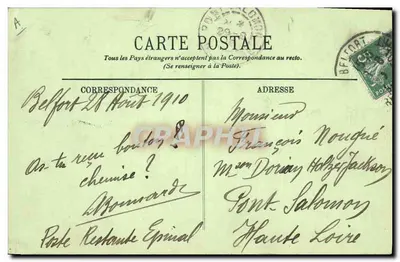 A
CARTE POSTALE
Tous les Pays étrangers n'acceptent pas la Correspondance au recto.
(Se renseigner à la Poste).
CORRESPONDANCE
Belfort 28 Août 1910
As-tu reçu boulon ?
chemise ?
Poste Restante Epinal
ADRESSE
Monsieur
François
Mson Dorian Holtzer Jackson
Pont Salomon
Haute Loire
BELFORT